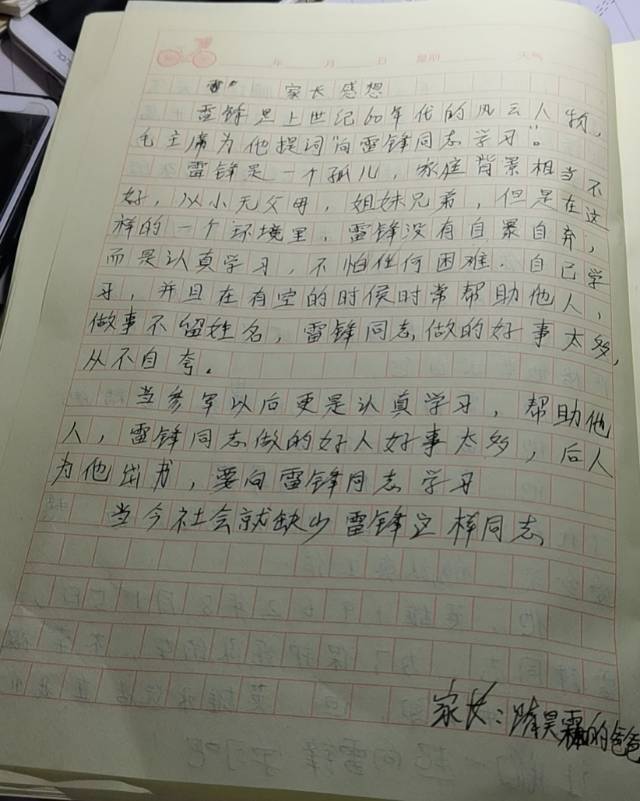 年 月 日 星期 天气
家长感想
雷锋是上世纪60年代的风云人物,
毛主席为他提词"向雷锋同志学习"。
雷锋是一个孤儿,家庭背景相当不
好,从小无父母,姐妹兄弟,但是在这
样的一个环境里,雷锋没有自暴自弃,
而是认真学习,不怕任何困难.自己学
习,并且在有空的时候时常帮助他人,
做事不留姓名,雷锋同志做的好事太多,
从不自夸.
当参军以后更是认真学习,帮助他
人,雷锋同志做的好人好事太多,后人
为他出书,要向雷锋同志学习
当今社会就缺少雷锋这样同志
家长:昊霖的爸爸